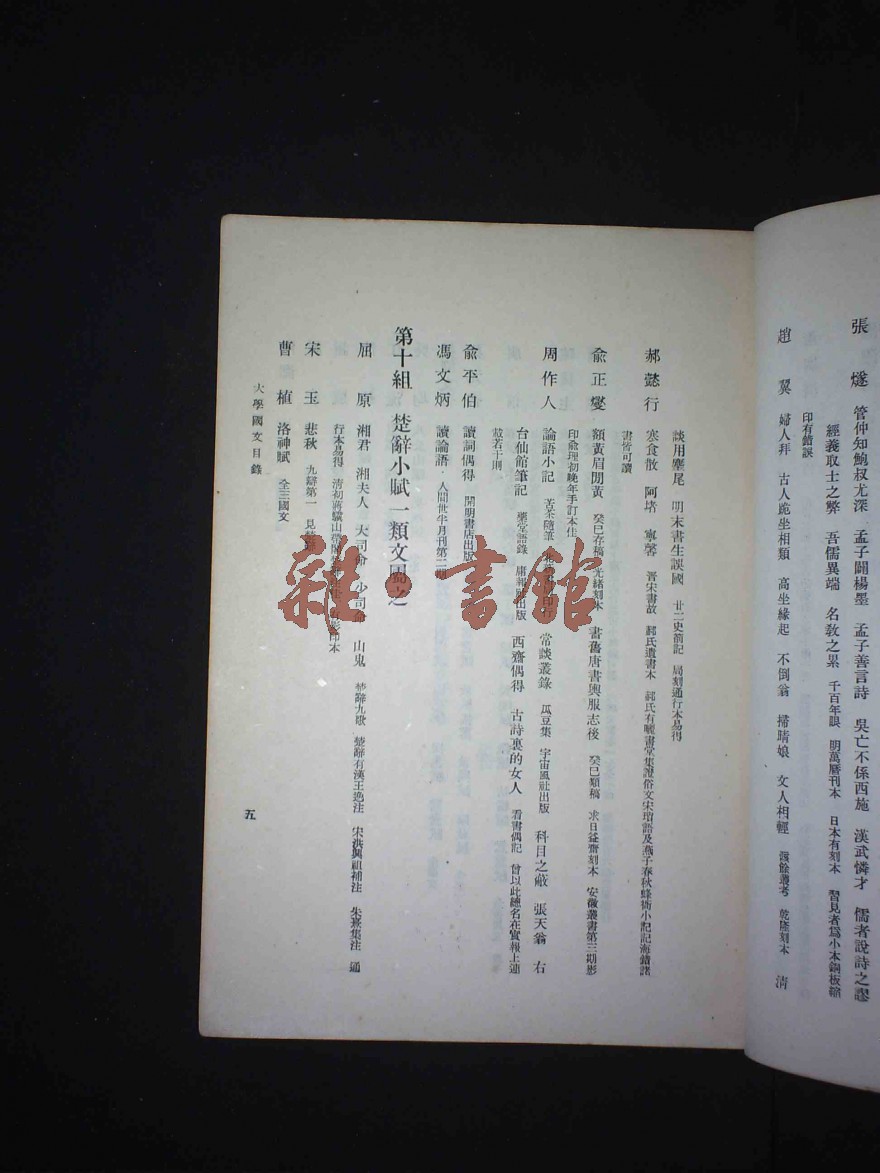 張 燧 管仲知鮑叔尤深 孟子闢楊墨 孟子善言詩 吳亡不係西施 漢武憐才 儒者說詩之謬
經義取士之弊 吾儒異端 名教之累 千百年眼 明萬曆刊本 日本有刻本 習見者為小本銅板縮
印有錯誤
趙 翼 婦人拜 古人跪坐相類 高坐緣起 不倒翁 掃晴娘 文人相輕 陔餘叢考 乾隆刻本 清
談用麈尾 明末書生誤國 廿二史劄記 局刻通行本易得
郝懿行 寒食散 阿堵 寧馨 晉宋書故 郝氏遺書本 郝氏有曬書堂集證俗文宋瑣語及燕子春秋蜂衙小記記海錯諸
書皆可讀
俞正燮 額黃眉間黃 癸巳存稿 光緒刻本 書舊唐書輿服志後 癸巳類稿 求日益齋刻本 安徽叢書第三期影
印俞理初晚年手訂本佳
周作人 論語小記 苦茶隨筆 常談叢錄 瓜豆集 宇宙風社出版 科目之蔽 張天翁 右
台仙館筆記 藥堂語錄 庸報 出版 西齋偶得 古詩裏的女人 看書偶記 曾以此總名在實報上連
載若干則
俞平伯 讀詞偶得 開明書店出版
馮文炳 讀論語 人間世半月刊第二期
第十組 楚辭小賦一類文屬之
屈 原 湘君 湘夫人 大司命 少司命 山鬼 楚辭九歌 楚辭有漢王逸注 宋洪興祖補注 朱熹集注 通
行本易得 清初蔣驥山帶閣 影印本
宋 玉 悲秋 九辯第一 見
曹 植 洛神賦 全三國文
大學國文目錄
五
雜·書館